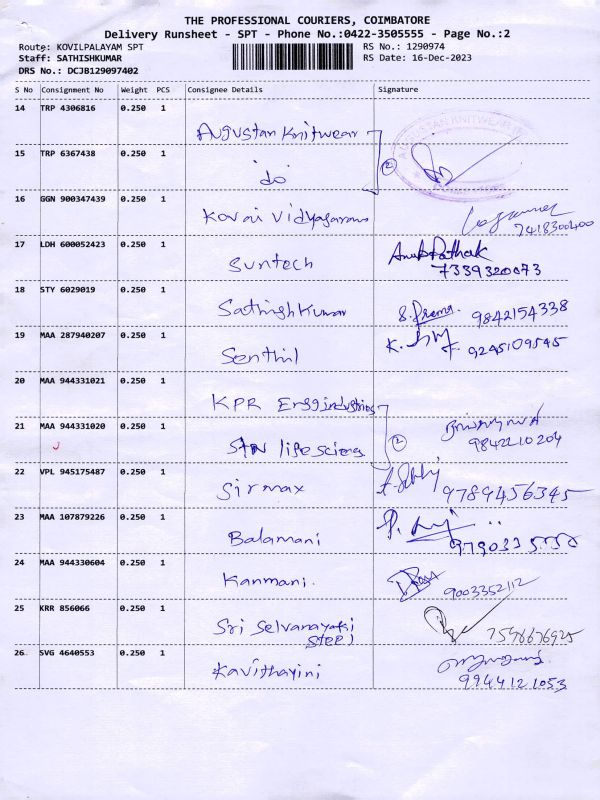 THE PROFESSIONAL COURIERS, COIMBATORE
Delivery Runsheet - SPT - Phone No.:0422-3505555 - Page No.:2
Route: KOVILPALAYAM SPT RS No.: 1290974
Staff: SATHISHKUMAR RS Date: 16-Dec-2023
DRS No.: DCJB129097402
S No Consignment No Weight PCS Consignee Details Signature
14 TRP 4306816 0.250 1
Augustan Knitwear
15 TRP 6367438 0.250 1
do 2
16 GGN 900347439 0.250 1
Kovai Vidyasarans
7418300400
17 LDH 600052423 0.250 1
Suntech
7339320073
18 STY 6029019 0.250 1
Sathishkumar S. Prema. 9842154338
19 MAA 287940207 0.250 1
Senthil K. 9245109545
20 MAA 944331021 0.250 1
KPR Engg industries
21 MAA 944331020 0.250 1
life Sciens 2 9842210204
22 VPL 945175487 0.250 1
Sirmax 9789456345
23 MAA 107879226 0.250 1
Balamani
24 MAA 944330604 0.250 1
Kanmani. 9003352112
25 KRR 856066 0.250 1
Sri Selvanayaki
Steel 7598676925
26 SVG 4640553 0.250 1
Kavithayini
9944121053